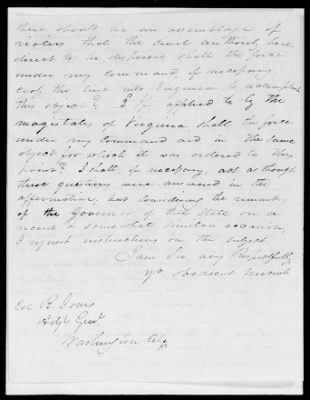 there should be an assemblage of
rioters that the civil authority have
direct to be dispersed shall the force
under my command, if necessary,
cross the line into Virginia to accomplish
this object? 2 If applied to by the
magistrates of Virginia shall the force
under my command aid in the same
object for which it was ordered to this
point? I shall, if necessary, act as though
these questions were answered in the
affirmative, but considering the remarks
of the Governor of that State on a
recent & somewhat similar occasion,
I request instructions on the subject
I am Sir very Respectfully
Yr obedient servant
Col R. Jones
Adjt Genl
Washington City